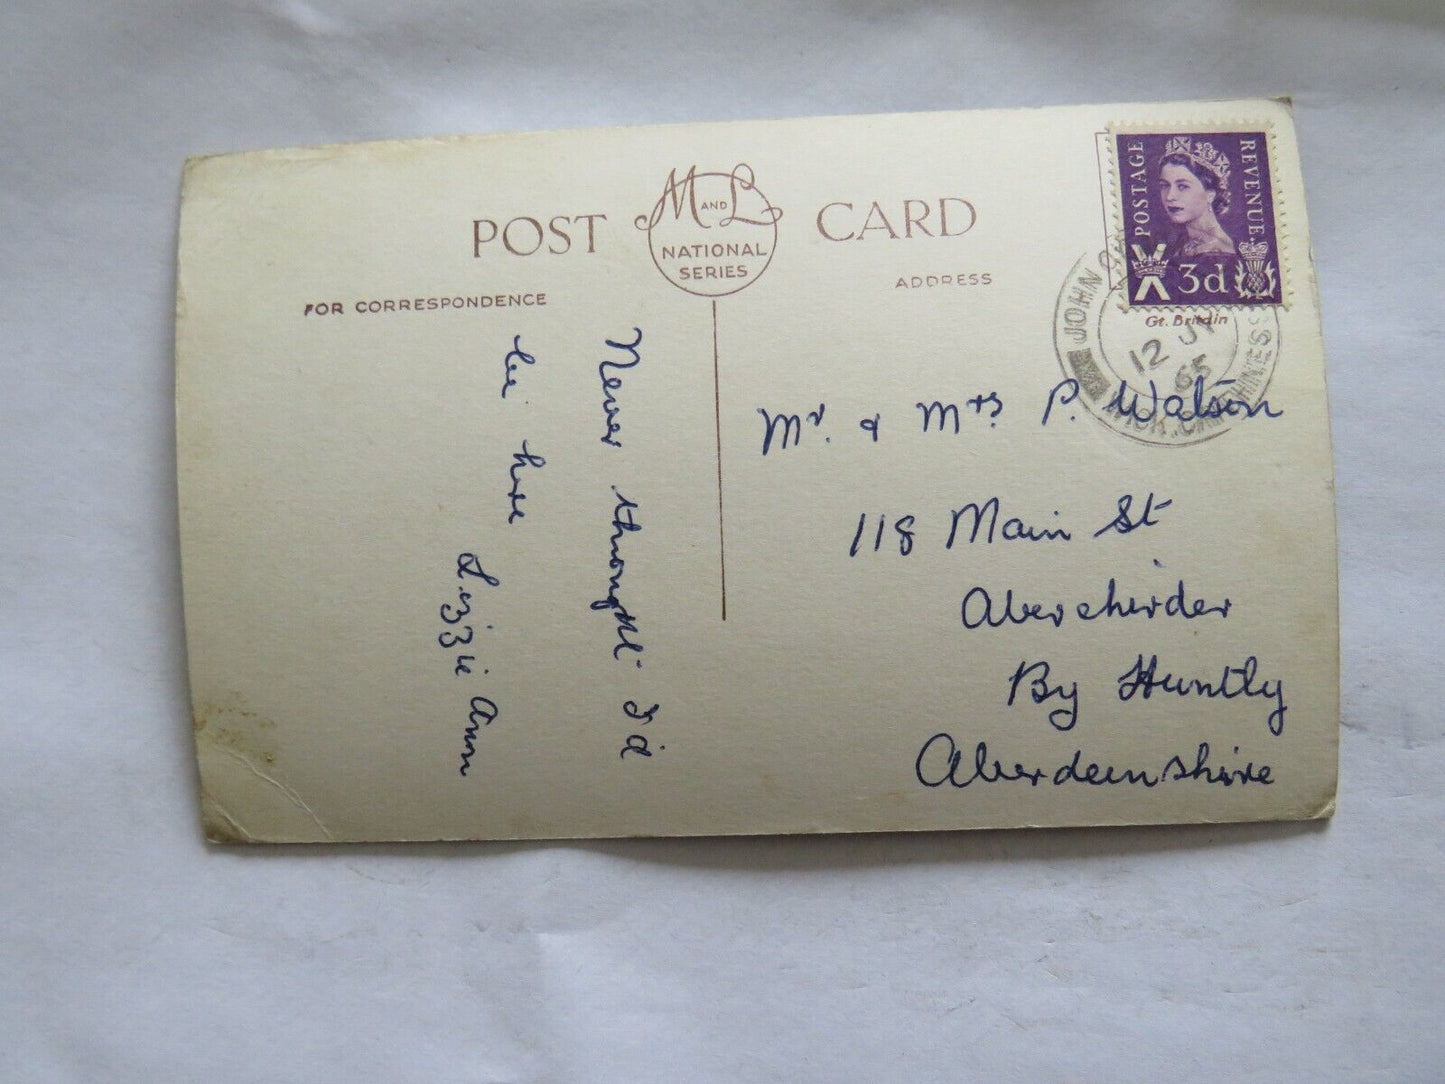 POST CARD
M AND L
NATIONAL
SERIES
FOR CORRESPONDENCE
ADDRESS
POSTAGE
REVENUE
3d
Gt. Britain
JOHN O
WICK. CAITHNESS
12 JY
65
Never thought I'd
be here
Lizzie Ann
Mr. & Mrs. P. Watson
118 Main St
Aberchirder
By Huntly
Aberdeenshire